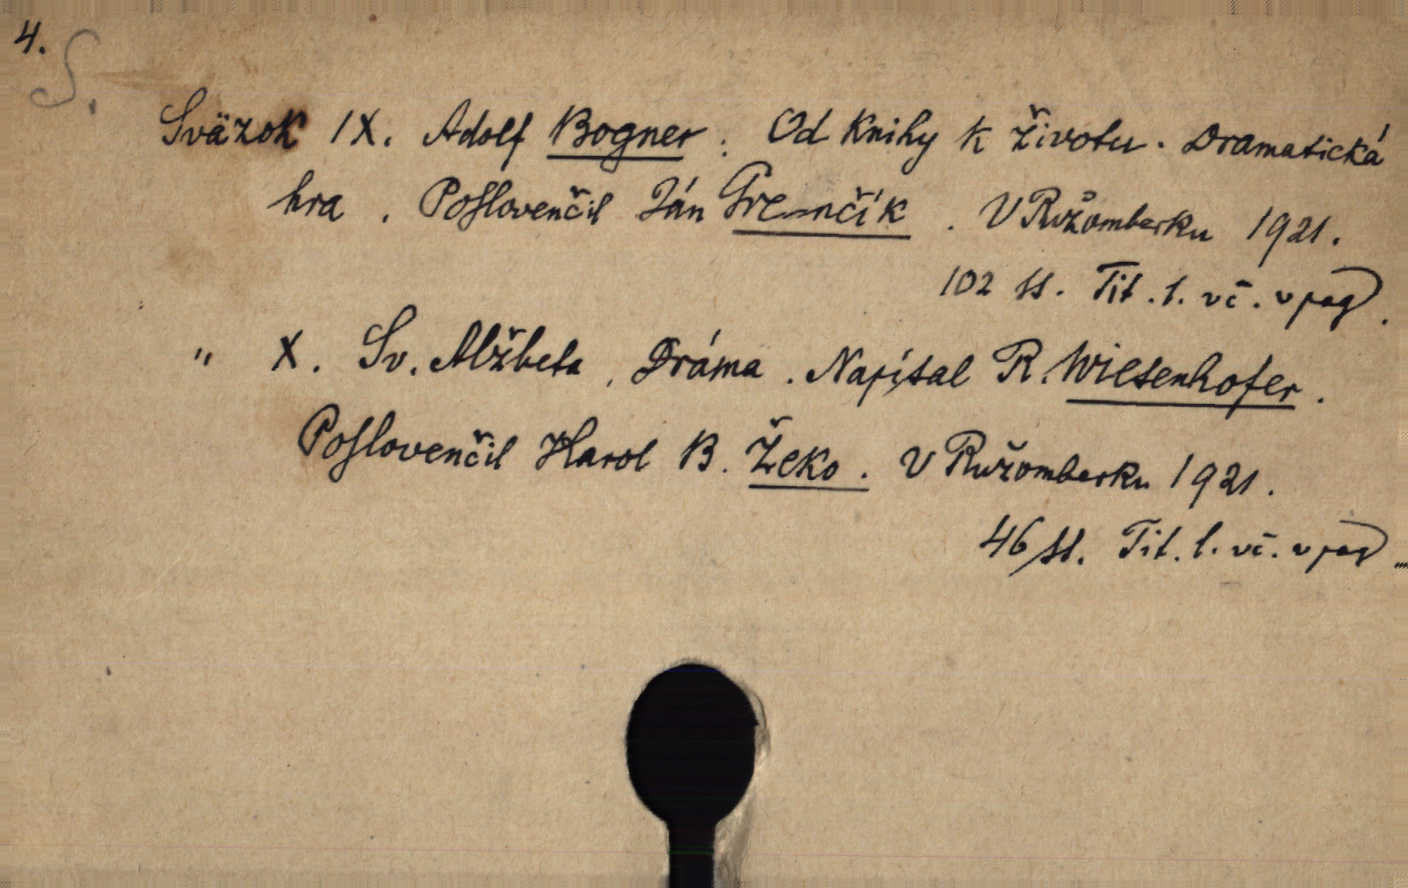 4.
S.
Sväzok IX. Adolf Bogner: Od knihy k životu. Dramatická
hra. Poslovenčil Ján Gremčík. V Ružomberku 1921.
102 ss. Tit. l. vč. v pag.
" X. Sv. Alžbeta, Dráma. Napísal R. Wiesenhofer.
Poslovenčil Karol B. Žeko. V Ružomberku 1921.
46 ss. Tit. l. vč. v pag...